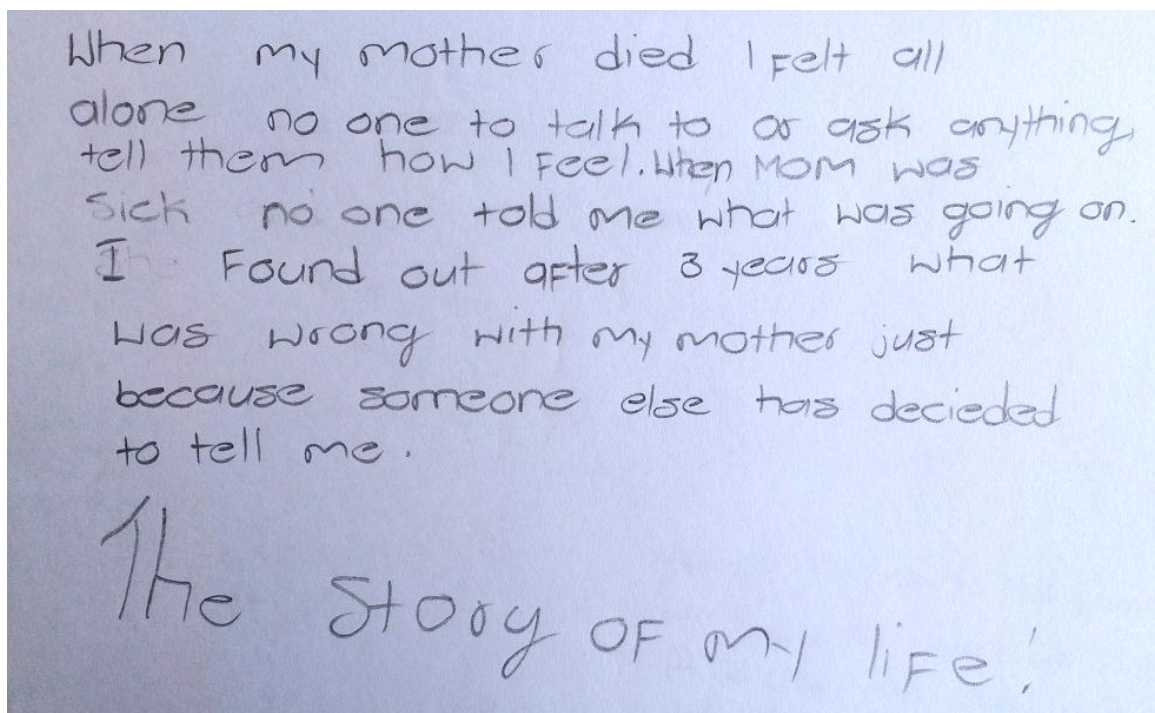 When my mother died I felt all
alone no one to talk to or ask anything,
tell them how I Feel. When MOM was
Sick no one told me what was going on.
I Found out after 3 years what
was wrong with my mother just
because someone else has decieded
to tell me.
The Story OF my liFe!